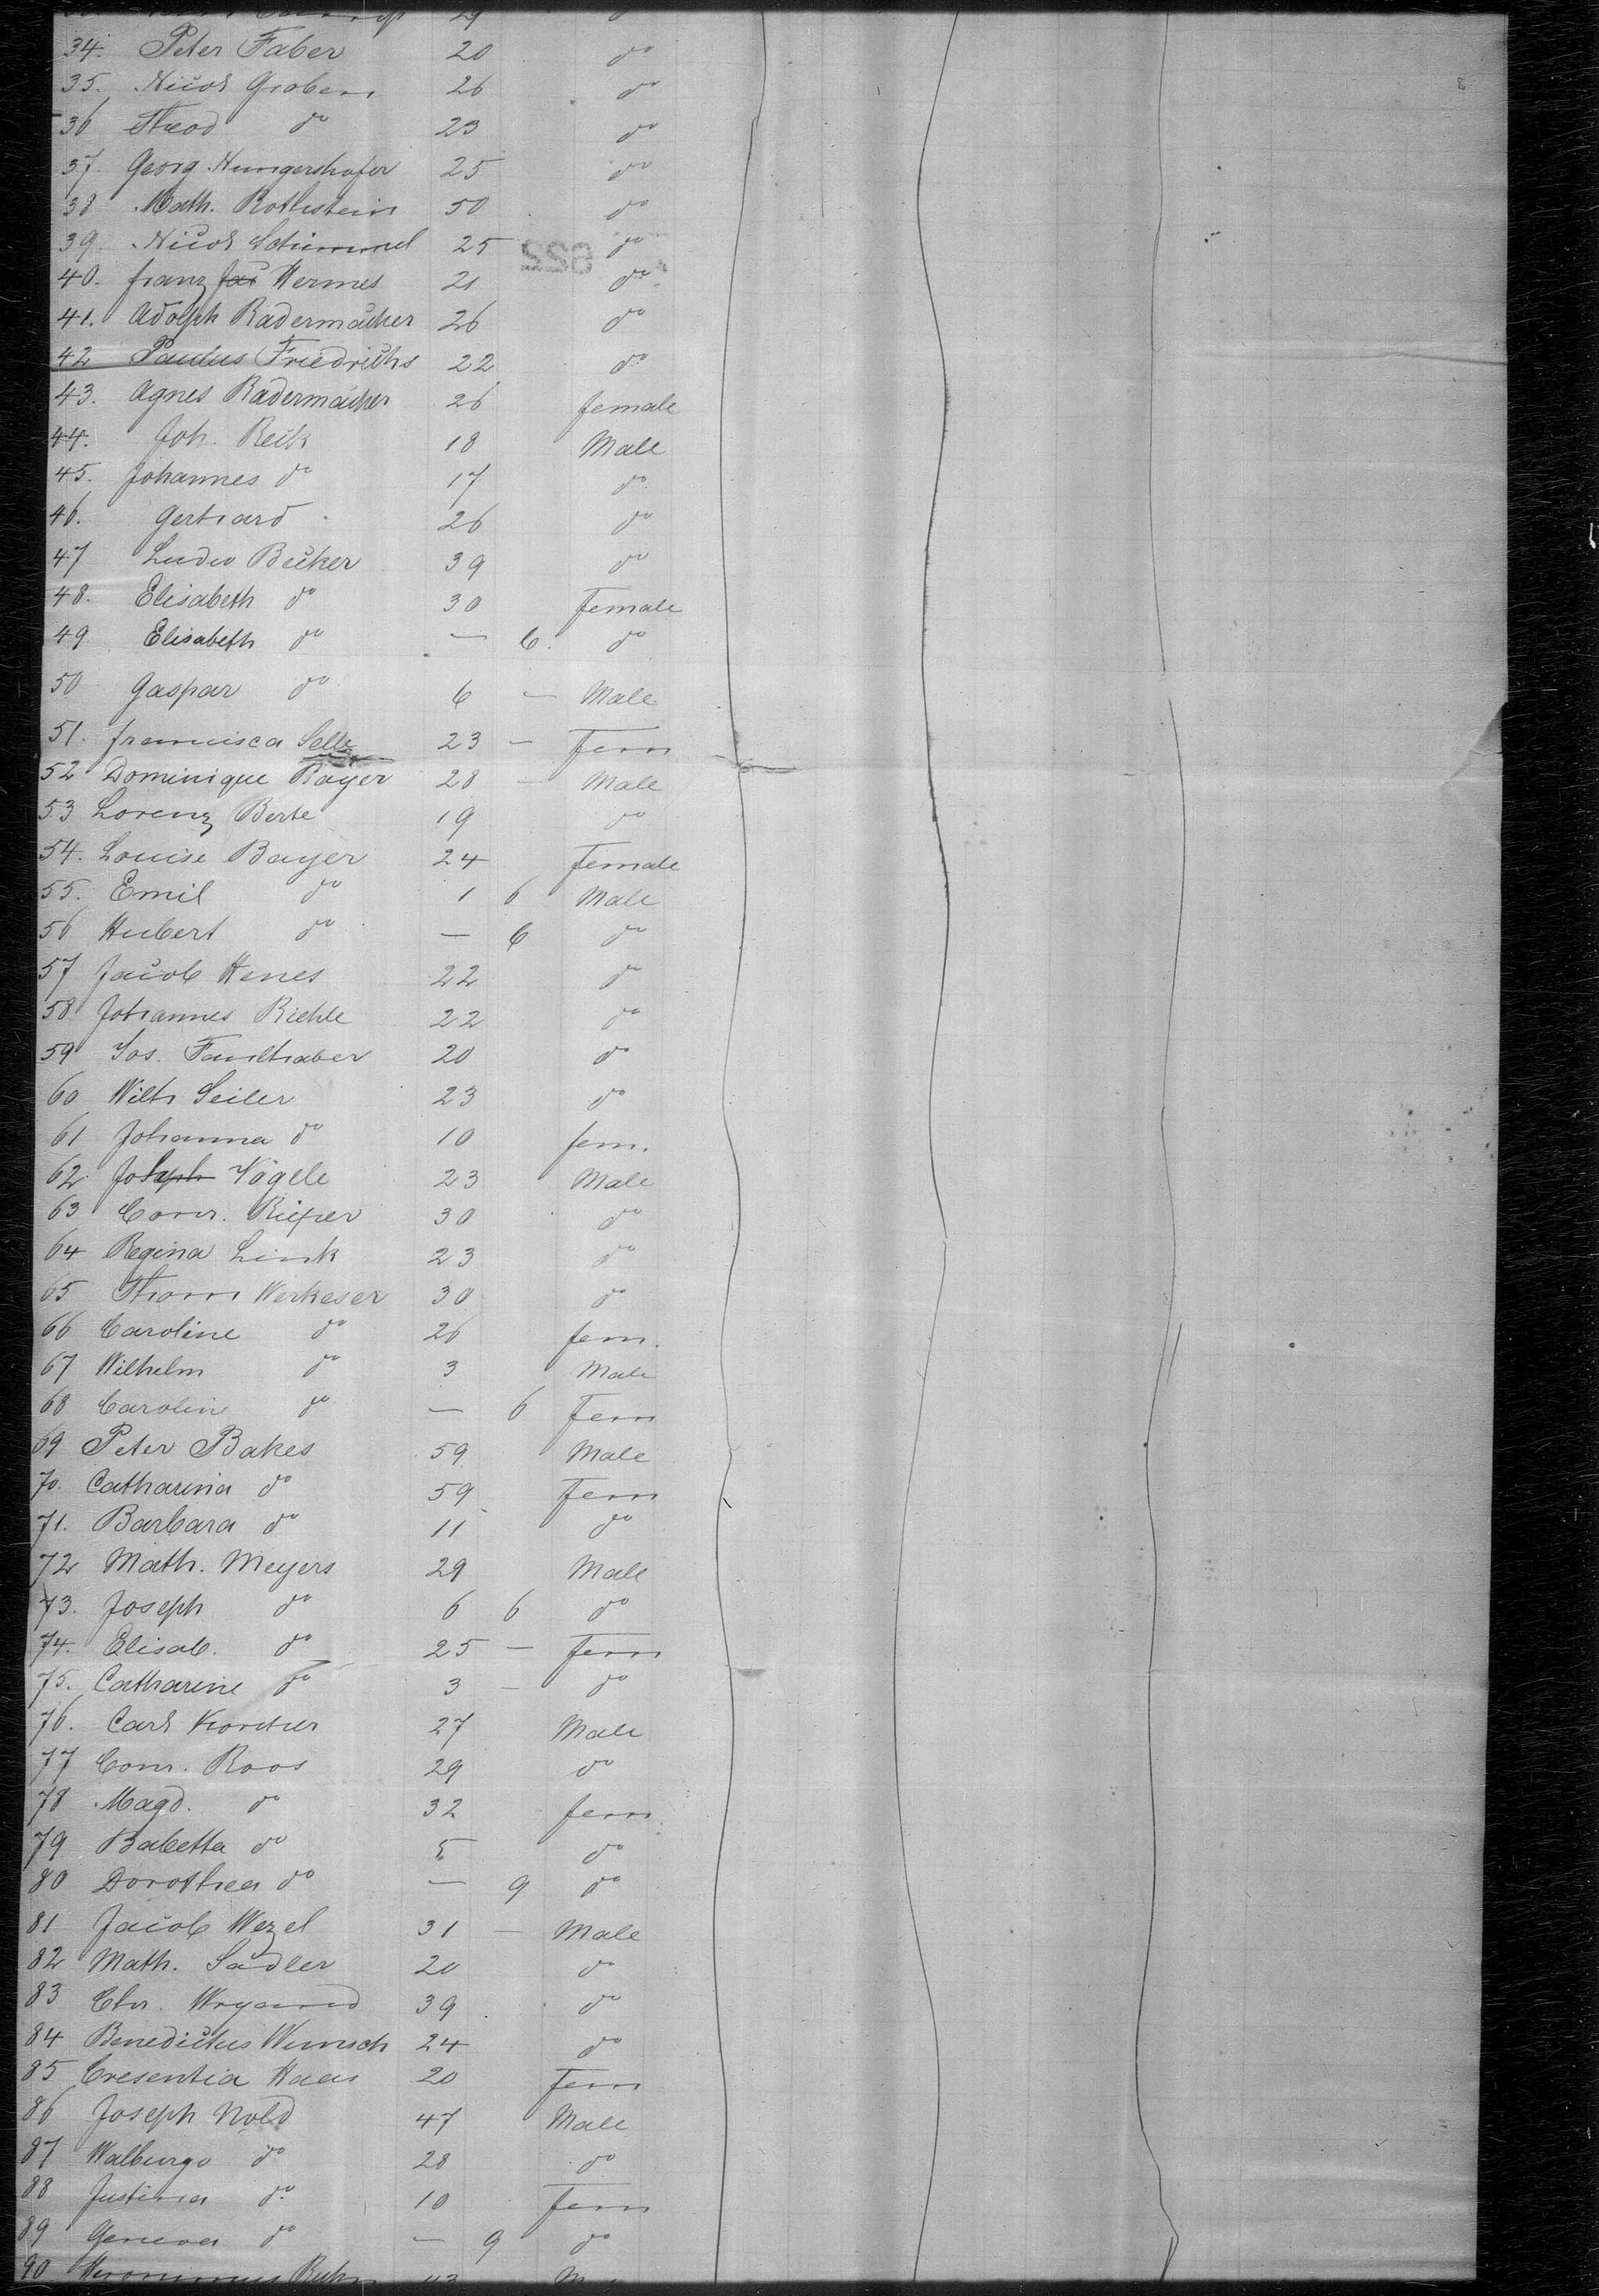 34. Peter Faber 20 do
35. Nicol Groben 26 do
36 Theod do 23 do
37. Georg Hungershofer 25 do
38 Math. Rothstein 50 do
39. Nicol Schimmel 25 do
40. Franz Hermes 21 do
41. Adolph Radermacher 26 do
42 Paulus Friedrichs 22 do
43. Agnes Radermacher 26 female
44. Joh. Reck 18 Male
45. Johannes do 17 do
46. Gerhard 26 do
47 Ludw Becker 39 do
48. Elisabeth do 30 Female
49 Elisabeth do — 6. do
50 Gaspar do 6 — Male
51. Francisca Selle 23 — Fem
52 Dominique Bayer 28 — Male
53 Lorenz Berte 19 do
54. Louise Bayer 24 Female
55. Emil do 1 6 Male
56 Hubert do — 6 do
57 Jacob Henes 22 do
58 Johannes Riehle 22 do
59 Jos. Faulhaber 20 do
60 Wilh Seiler 23 do
61 Johanna do 10 fem.
62. Joseph Vögele 23 Male
63 Conr. 30 do
64 Regina Link 23 do
65 Thom Werkeser 30 do
66 Caroline do 26 fem.
67 Wilhelm do 3 Male
68 Carolin do — 6 Fem
69 Peter Bakes 59 Male
70. Catharina do 59 Fem
71. Barbara do 11 do
72 Math. Meyers 29 Male
73. Joseph do 6 6 do
74. Elisab. do 25 — Fem
75. Catharine do 3 — do
76. Carl 27 Male
77 Conr. Roos 29 do
78 Magd. do 32 fem
79 Babetta do 5 do
80 Dorothea do — 9 do
81 Jacob Wezel 31 — Male
82 Math. Sadler 20 do
83 Chr. 39 do
84 Benedictus Wunsch 24 do
85 Cresentia Haas 20 Fem
86 Joseph Nold 47 Male
87 Walburga do 28 do
88 Justina do 10 Fem
89 Geneva do — 9 do
90